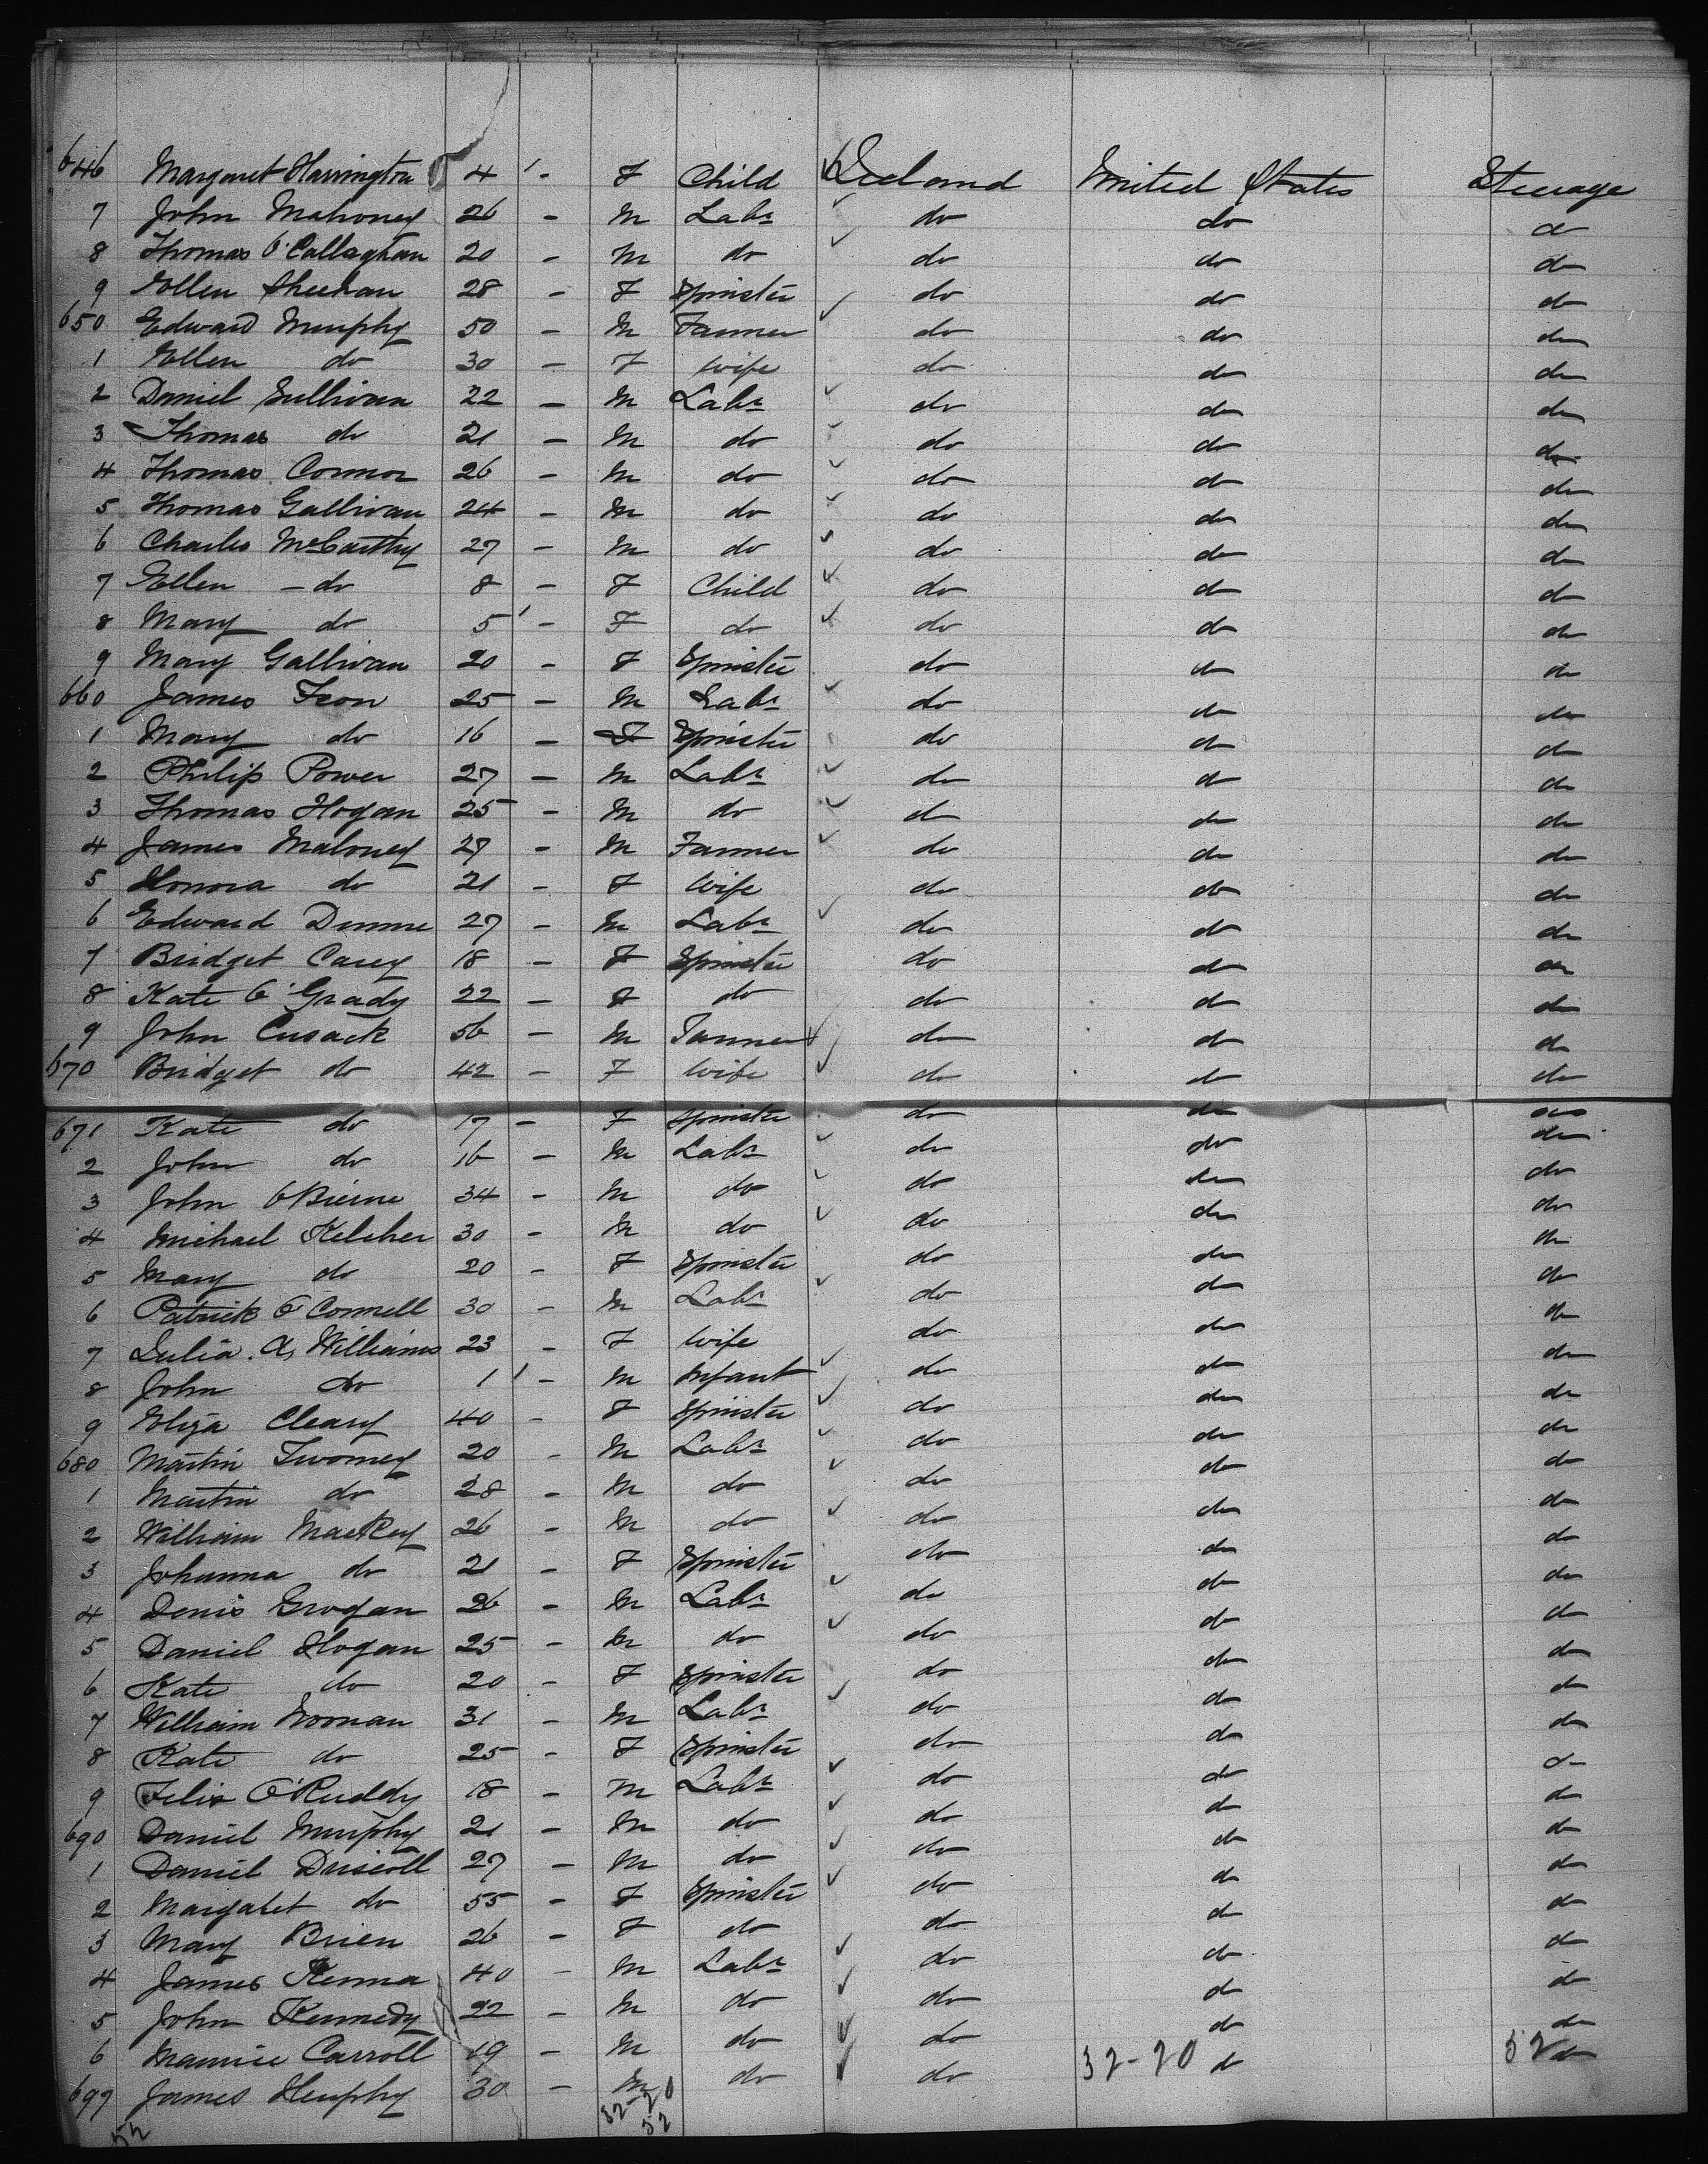 646 Margaret Harrington 4 - F Child Ireland United States Steerage
7 John Mahoney 26 - M Labr do do do
8 Thomas O'Callaghan 20 - M do do do do
9 Ellen Sheehan 28 - F Spinster do do do
650 Edward Murphy 50 - M Farmer do do do
1 Ellen do 30 - F Wife do do do
2 Daniel Sullivan 22 - M Labr do do do
3 Thomas do 21 - M do do do do
4 Thomas Connor 26 - M do do do do
5 Thomas Gallivan 24 - M do do do do
6 Charles McCarthy 27 - M do do do do
7 Ellen - do 8 - F Child do do do
8 Mary do 5 - F do do do do
9 Mary Gallivan 20 - F Spinster do do do
660 James 25 - M Labr do do do
1 Mary do 16 - F Spinster do do do
2 Philip Power 27 - M Labr do do do
3 Thomas Hogan 25 - M do do do do
4 James Maloney 27 - M Farmer do do do
5 Honora do 21 - F Wife do do do
6 Edward Dunne 27 - M Labr do do do
7 Bridget Carey 18 - F Spinster do do do
8 Kate O'Grady 22 - F do do do do
9 John Cusack 56 - M Farmer do do do
670 Bridget do 42 - F Wife do do do
671 Kate do 17 - F Spinster do do do
2 John do 16 - M Labr do do do
3 John O'Bierne 34 - M do do do do
4 Michael Keleher 30 - M do do do do
5 Mary do 20 - F Spinster do do do
6 Patrick O'Connell 30 - M Labr do do do
7 Julia A. Williams 23 - F Wife do do do
8 John do 1 - M Infant do do do
9 Eliza Cleary 40 - F Spinster do do do
680 Martin Twomey 20 - M Labr do do do
1 Martin do 28 - M do do do do
2 William Mackey 26 - M do do do do
3 Johanna do 21 - F Spinster do do do
4 Denis Grogan 26 - M Labr do do do
5 Daniel Hogan 25 - M do do do do
6 Kate do 20 - F Spinster do do do
7 William Noonan 31 - M Labr do do do
8 Kate do 25 - F Spinster do do do
9 Felix O'Ruddy 18 - M Labr do do do
690 Daniel Murphy 21 - M do do do do
1 Daniel Driscoll 27 - M do do do do
2 Margaret do 55 - F Spinster do do do
3 Mary Brien 26 - F do do do do
4 James Kenna 40 - M Labr do do do
5 John Kennedy 22 - M do do do do
6 Maurice Carroll 19 - M do do do do
697 James Heuphy 30 - M do do 32-20 do 52 do
52 32-20
52